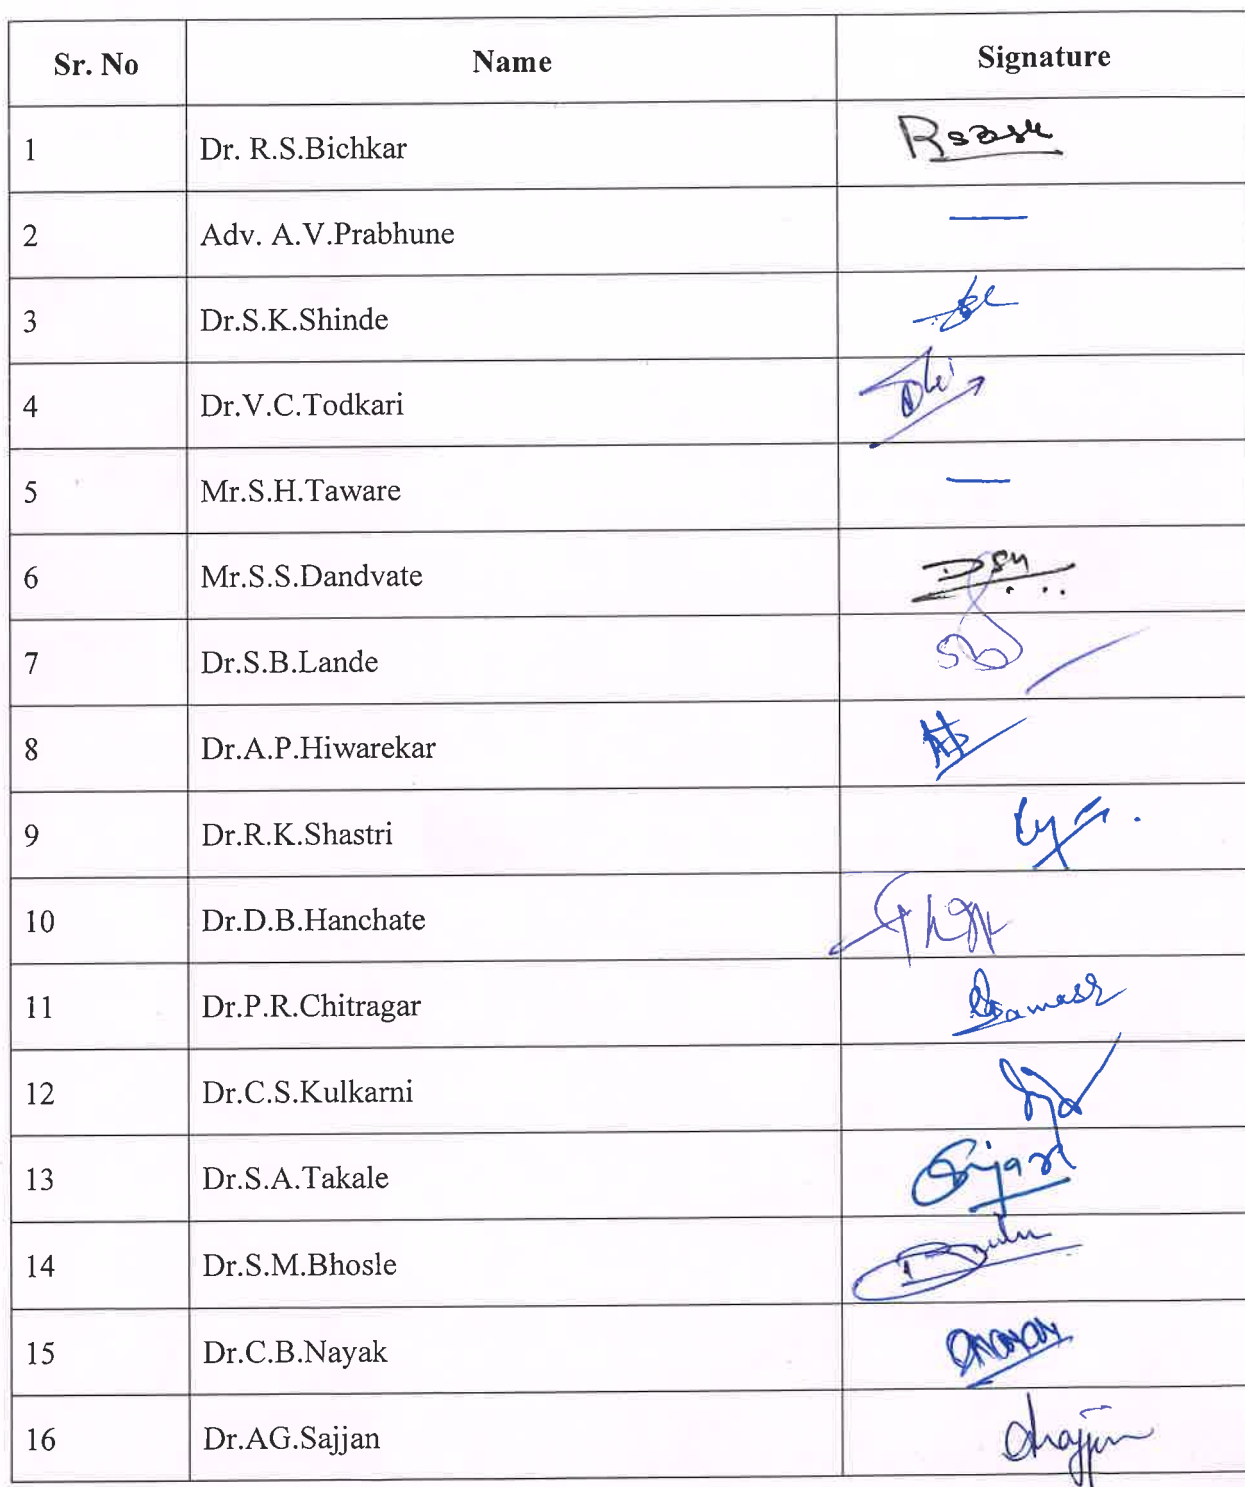 Sr. No Name Signature
1 Dr. R.S.Bichkar
2 Adv. A.V.Prabhune —
3 Dr.S.K.Shinde
4 Dr.V.C.Todkari
5 Mr.S.H.Taware —
6 Mr.S.S.Dandvate
7 Dr.S.B.Lande
8 Dr.A.P.Hiwarekar
9 Dr.R.K.Shastri
10 Dr.D.B.Hanchate
11 Dr.P.R.Chitragar
12 Dr.C.S.Kulkarni
13 Dr.S.A.Takale
14 Dr.S.M.Bhosle
15 Dr.C.B.Nayak
16 Dr.AG.Sajjan